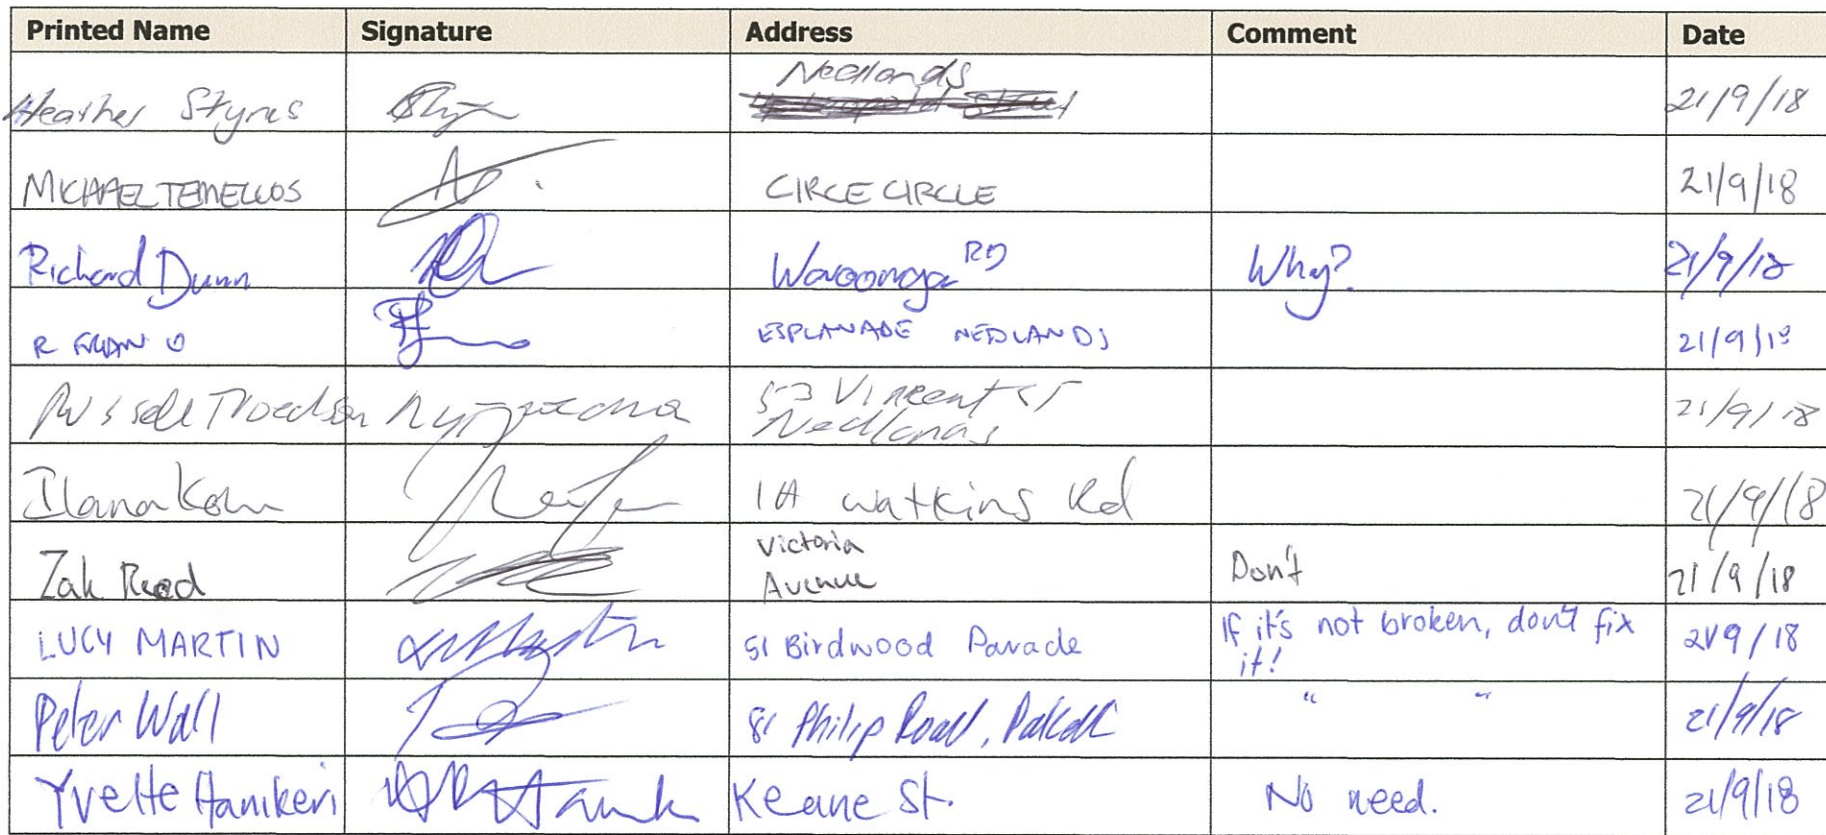 Printed Name Signature Address Comment Date
Heather Styres Nedlands 21/9/18
MICHAEL TEMELLOS CIRCE CIRCLE 21/9/18
Richard Dunn Waroonga RD Why? 21/9/18
R ESPLANADE NEDLANDS 21/9/18
Russell Troedson 53 Vincent ST
Nedlands 21/9/18
Ilana 1A Watkins Rd 21/9/18
Zak Reed Victoria
Avenue Don't 21/9/18
LUCY MARTIN 51 Birdwood Parade If it's not broken, don't fix
it! 21/9/18
Peter Wall 81 Philip Road, " " 21/9/18
Yvette Hamikeri Keane St. No need. 21/9/18